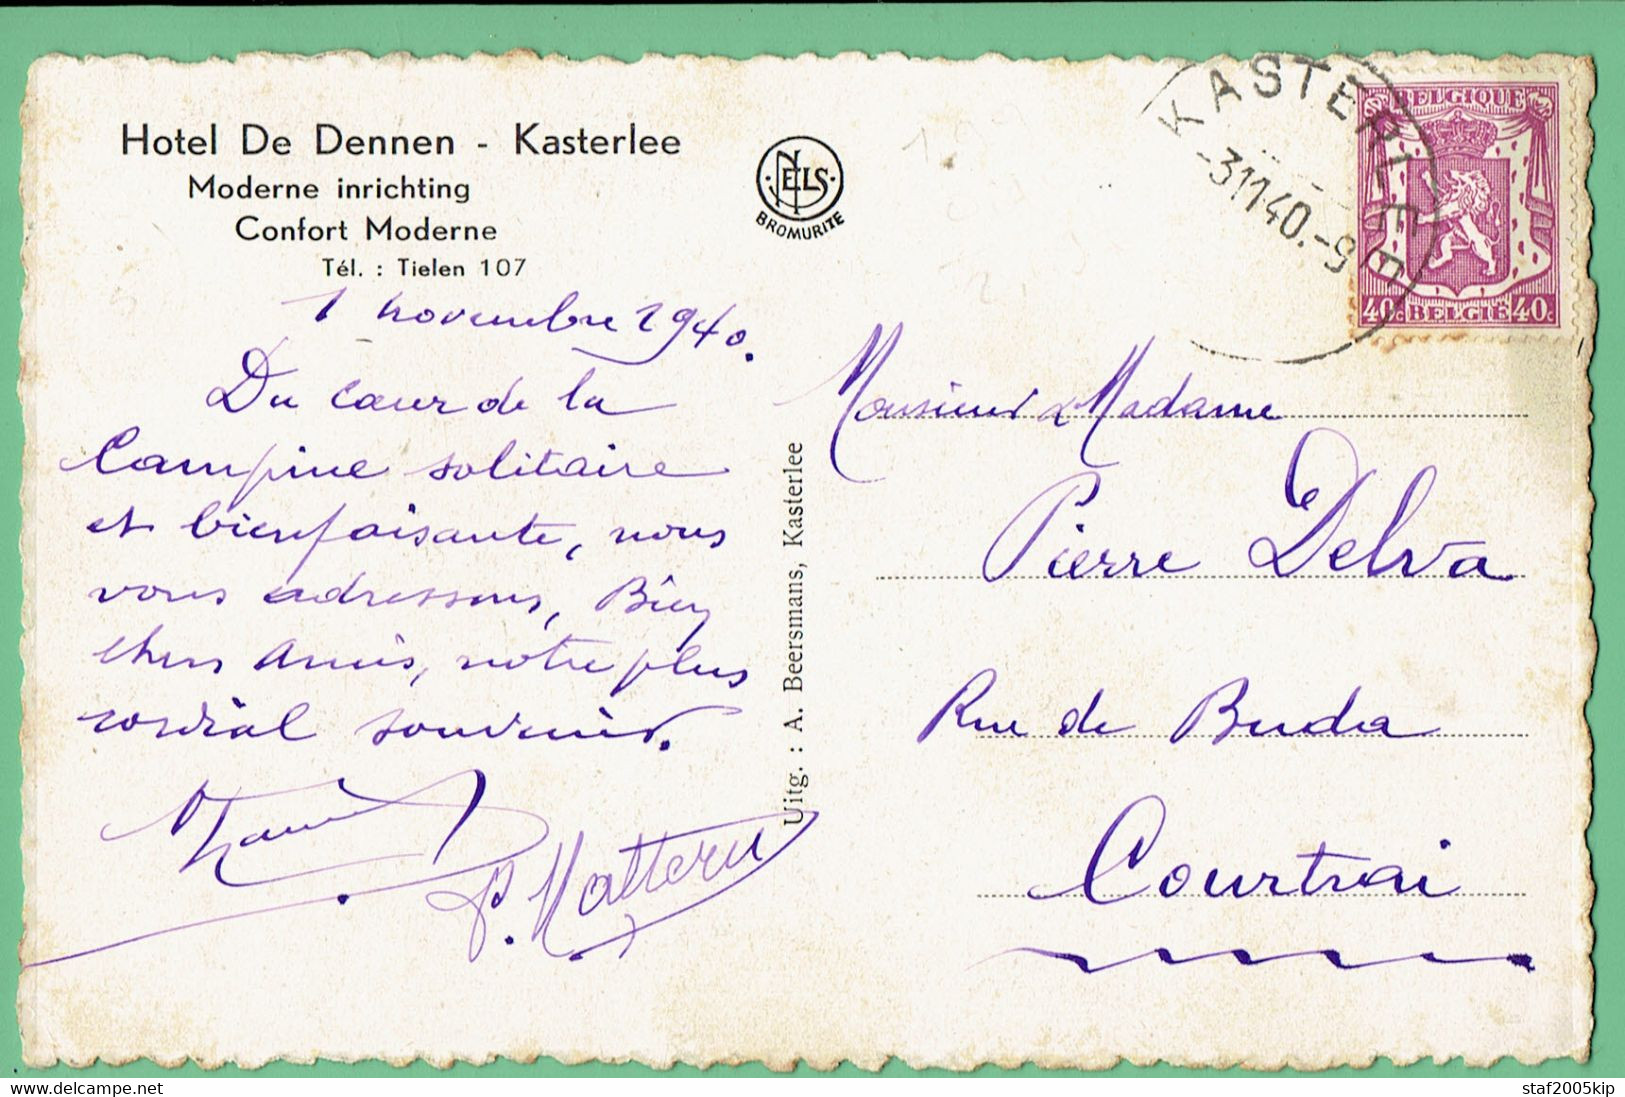 Hotel De Dennen - Kasterlee
Moderne inrichting
Confort Moderne
Tél. : Tielen 107
NELS
BROMURITE
KASTERLEE
-3 11 40.-9
BELGIQUE
40c BELGIË 40c
1 novembre 1940.
Du cœur de la
Campine solitaire
et bienfaisante, nous
vous adressons, Bien
chers Amis, notre plus
cordial souvenir.
P. Mattern
Uitg. : A. Beersmans, Kasterlee
Monsieur & Madame
Pierre Delva
Rue de Buda
Courtrai
delcampe.net
staf2005kip